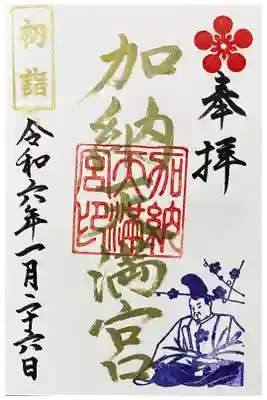 奉拝
加納天満宮
加納天満宮印
初詣
令和六年一月二十六日